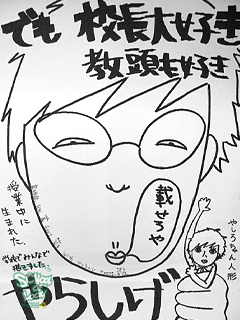 でも 校長大好き
教頭も好き
載せろや
授業中に
生まれた。
学校でみんなで
描きました。
やしろちゃん人形
やらしげ